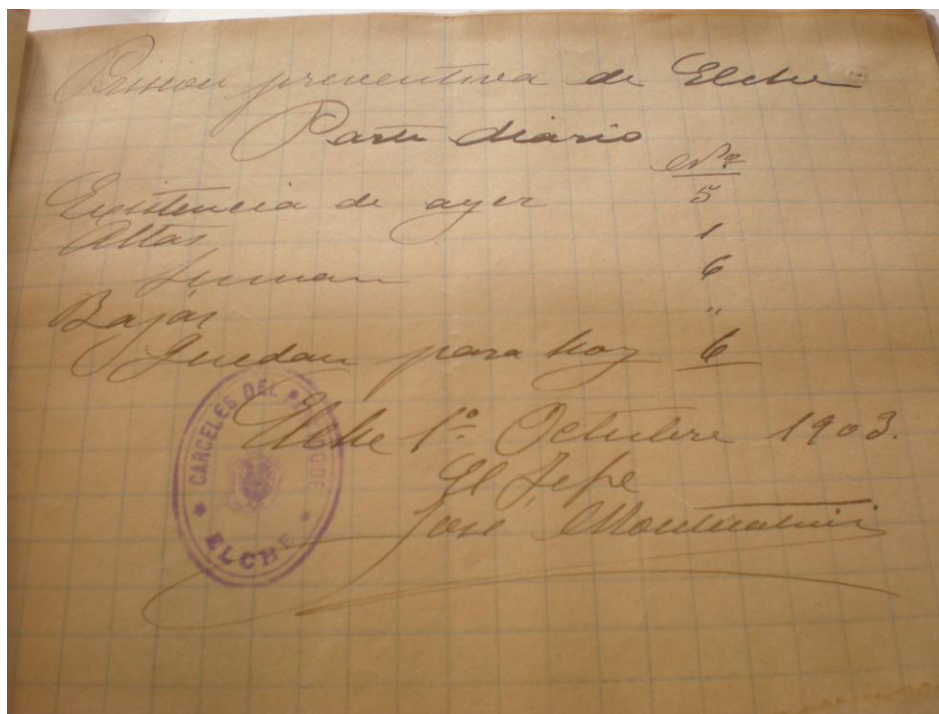 Prision preventiva de Elche
Parte diario
Nº
Existencia de ayer 5
Altas 1
Suman 6
Bajas "
Quedan para hoy 6
Elche 1º Octubre 1903.
El Jefe
José
CARCELES DEL PARTIDO DE
ELCHE